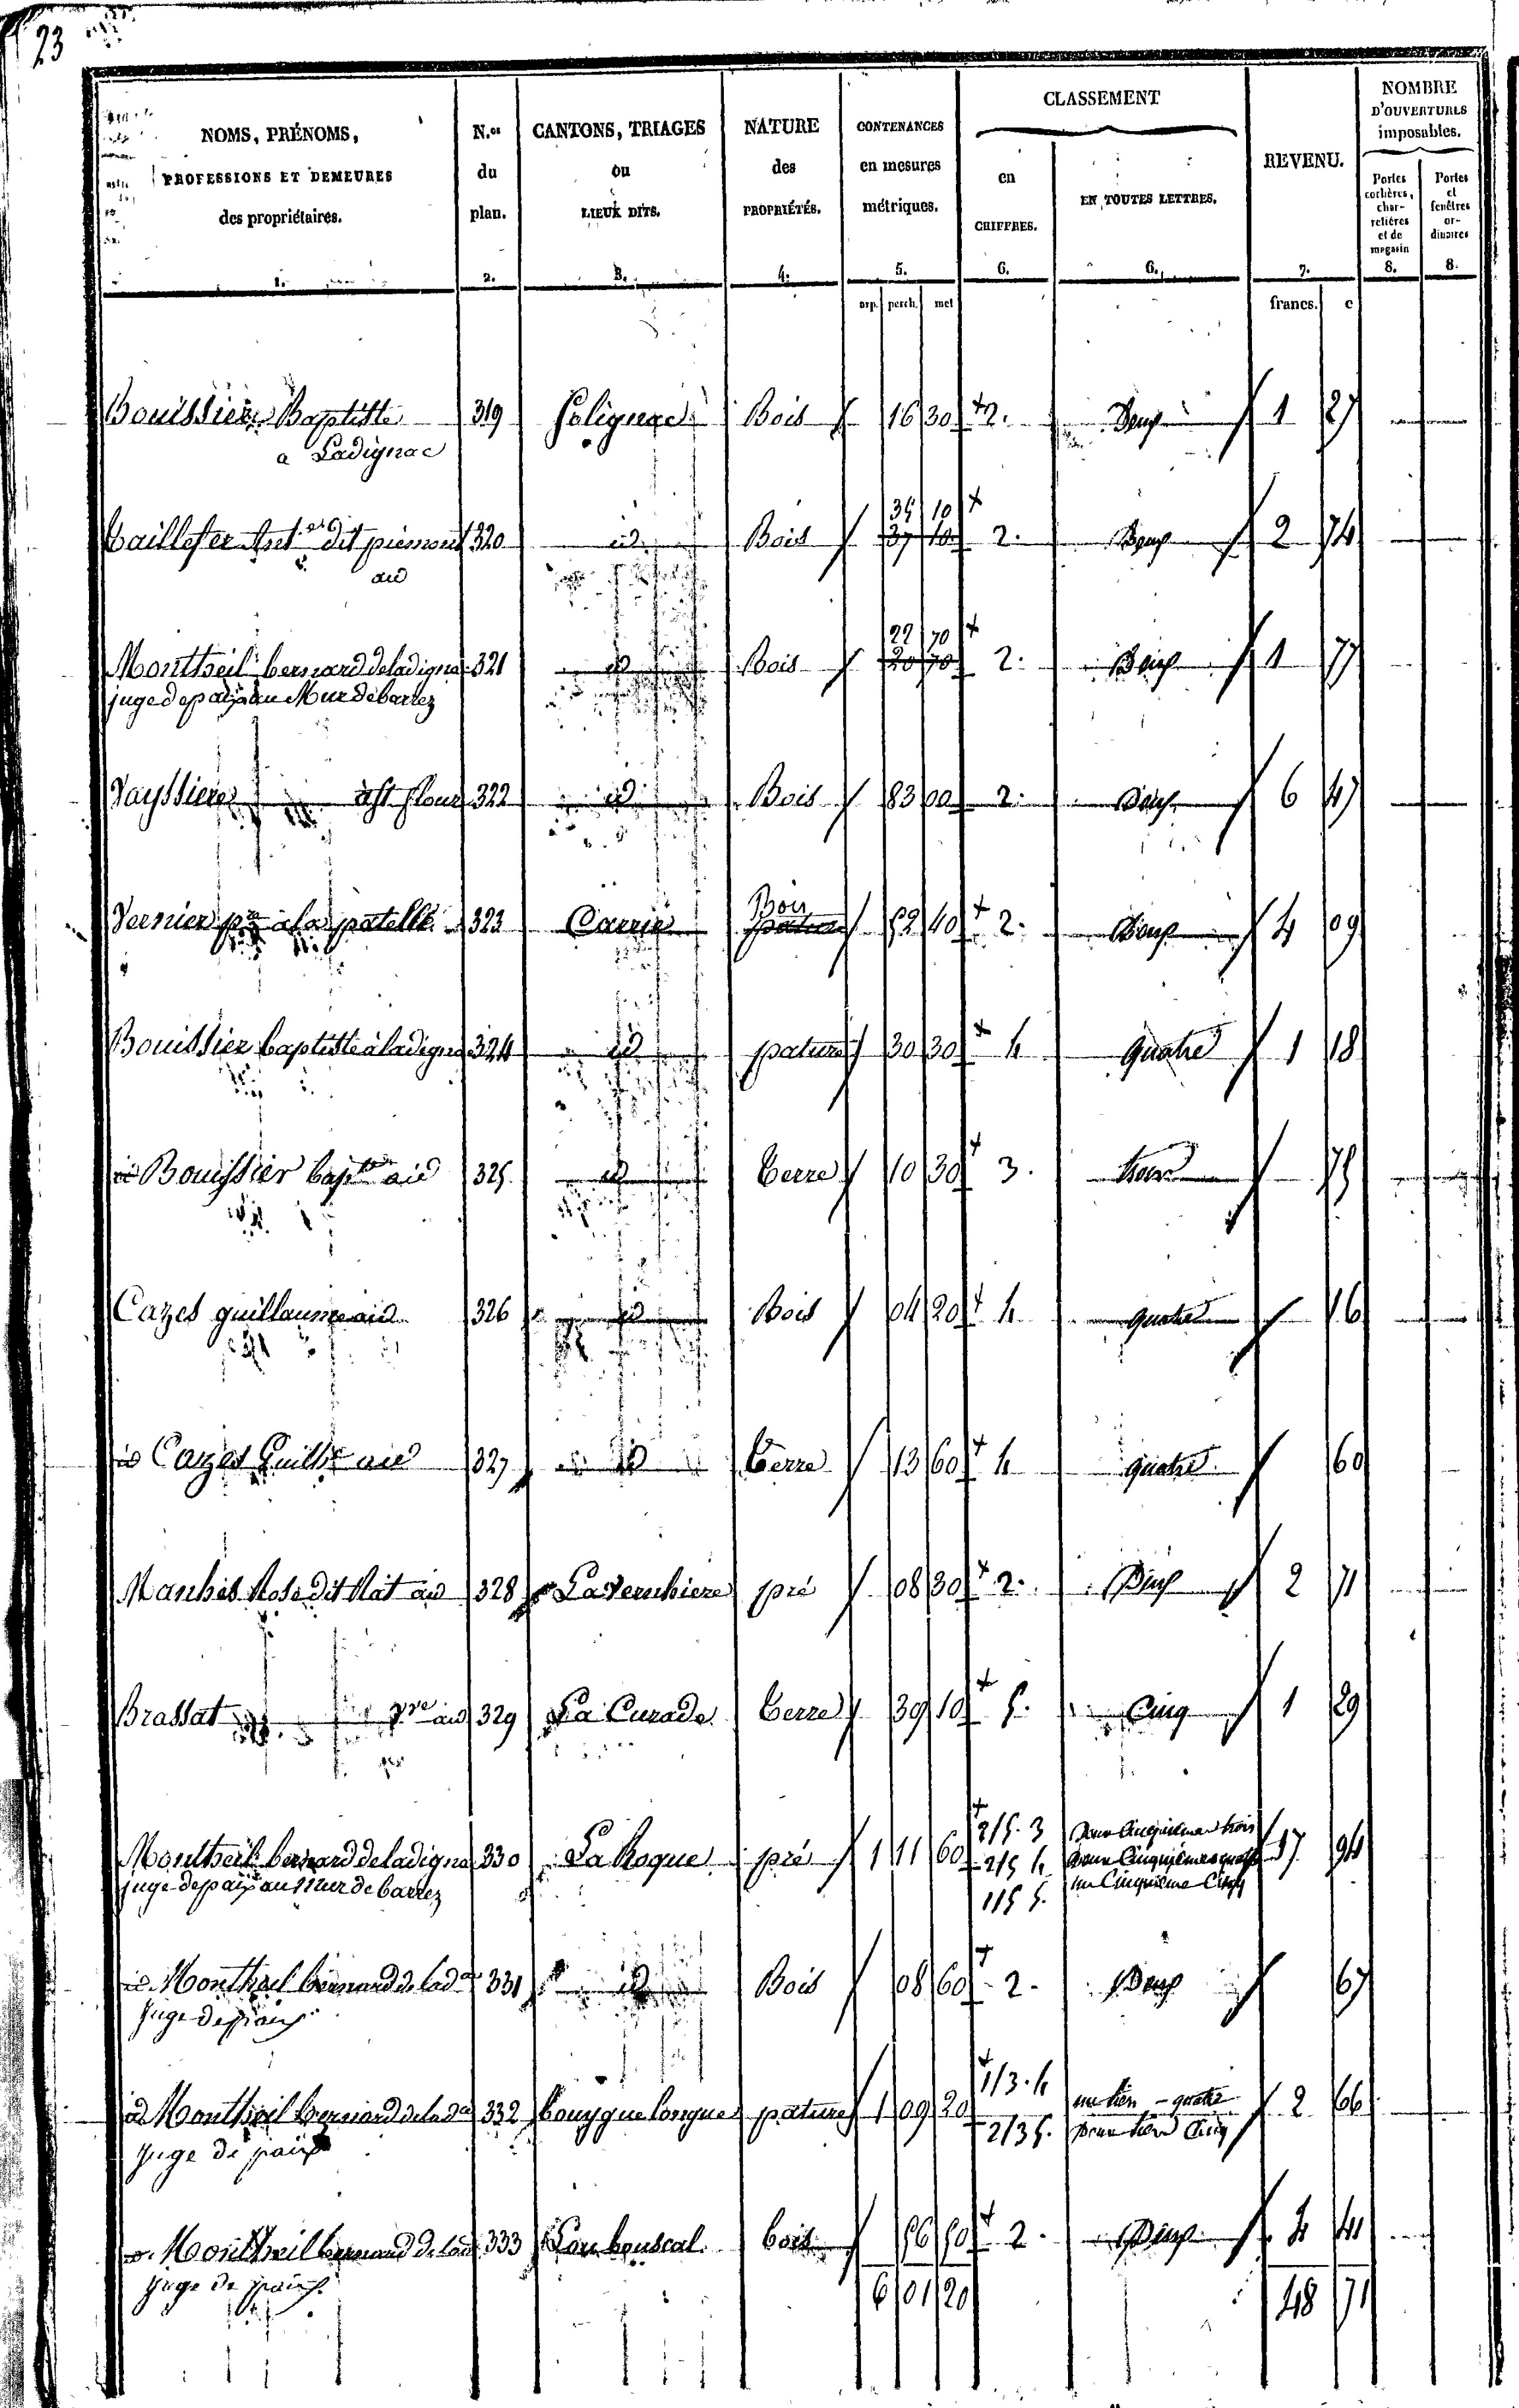 23
NOMS, PRÉNOMS, PROFESSIONS ET DEMEURES des propriétaires. 1.
N.os du plan. 2.
CANTONS, TRIAGES ou LIEUX DITS. 3.
NATURE des PROPRIÉTÉS. 4.
CONTENANCES en mesures métriques. 5.
CLASSEMENT
en CHIFFRES. 6.
EN TOUTES LETTRES. 6.
REVENU. 7.
NOMBRE D'OUVERTURES imposables.
Portes cochères, charretières et de magasin 8.
Portes et fenêtres ordinaires 8.
arp. perch. met
francs. c
Bouissière Baptiste 319 Polignac Bois 16 30 2. Deux 1 27
a Ladignac
34 10
320 id Bois 37 10 2. Deux 2 74
aid
22 70
Montheil bernard deladignac 321 id Bois 20 70 2. Deux 1 77
juge de paix au Mur de barrez
Vayssiere a st flour 322 id Bois 83 00 2. Deux 6 47
Bois
Vernier pre a la patelle 323 Carrie pature 52 40 2. Deux 4 09
Bouissier baptiste à ladignac 324 id pature 30 30 4 quatre 1 18
id Bouissier bapte aid 325. id terre 10 30 3. trois 75
Cazes guillaume aid 326 id Bois 04 20 4 quatre 16
id Cazes Guille aid 327 id terre 13 60 4 quatre 60
Manhes Rose dit Rat aid 328 La Vernhiere pré 08 30 2. Deux 2 71
Brassat pre aid 329 La Curade terre 39 10 5. Cinq 1 29
2/5. 3 Deux Cinquieme trois
Montheil bernard deladignac 330 La Roque pré 1 11 60 2/5 4 Deux Cinquiemes quatre 17 94
juge de paix au Mur de barrez 1/5 5. un Cinquieme Cinq
id Montheil bernard de lad 331 id Bois 08 60 2. Deux 67
Juge de paix
1/3. 4 un tiers - quatre
id Montheil bernard de lad 332 bouygue longue pature 1 09 20 2 66
2/3 5. Deux tiers Cinq
Juge de paix
id. Montheil bernard de lad 333 Lou bouscal bois 56 50 2. Deux 4 41
Juge de paix
6 01 20 48 71